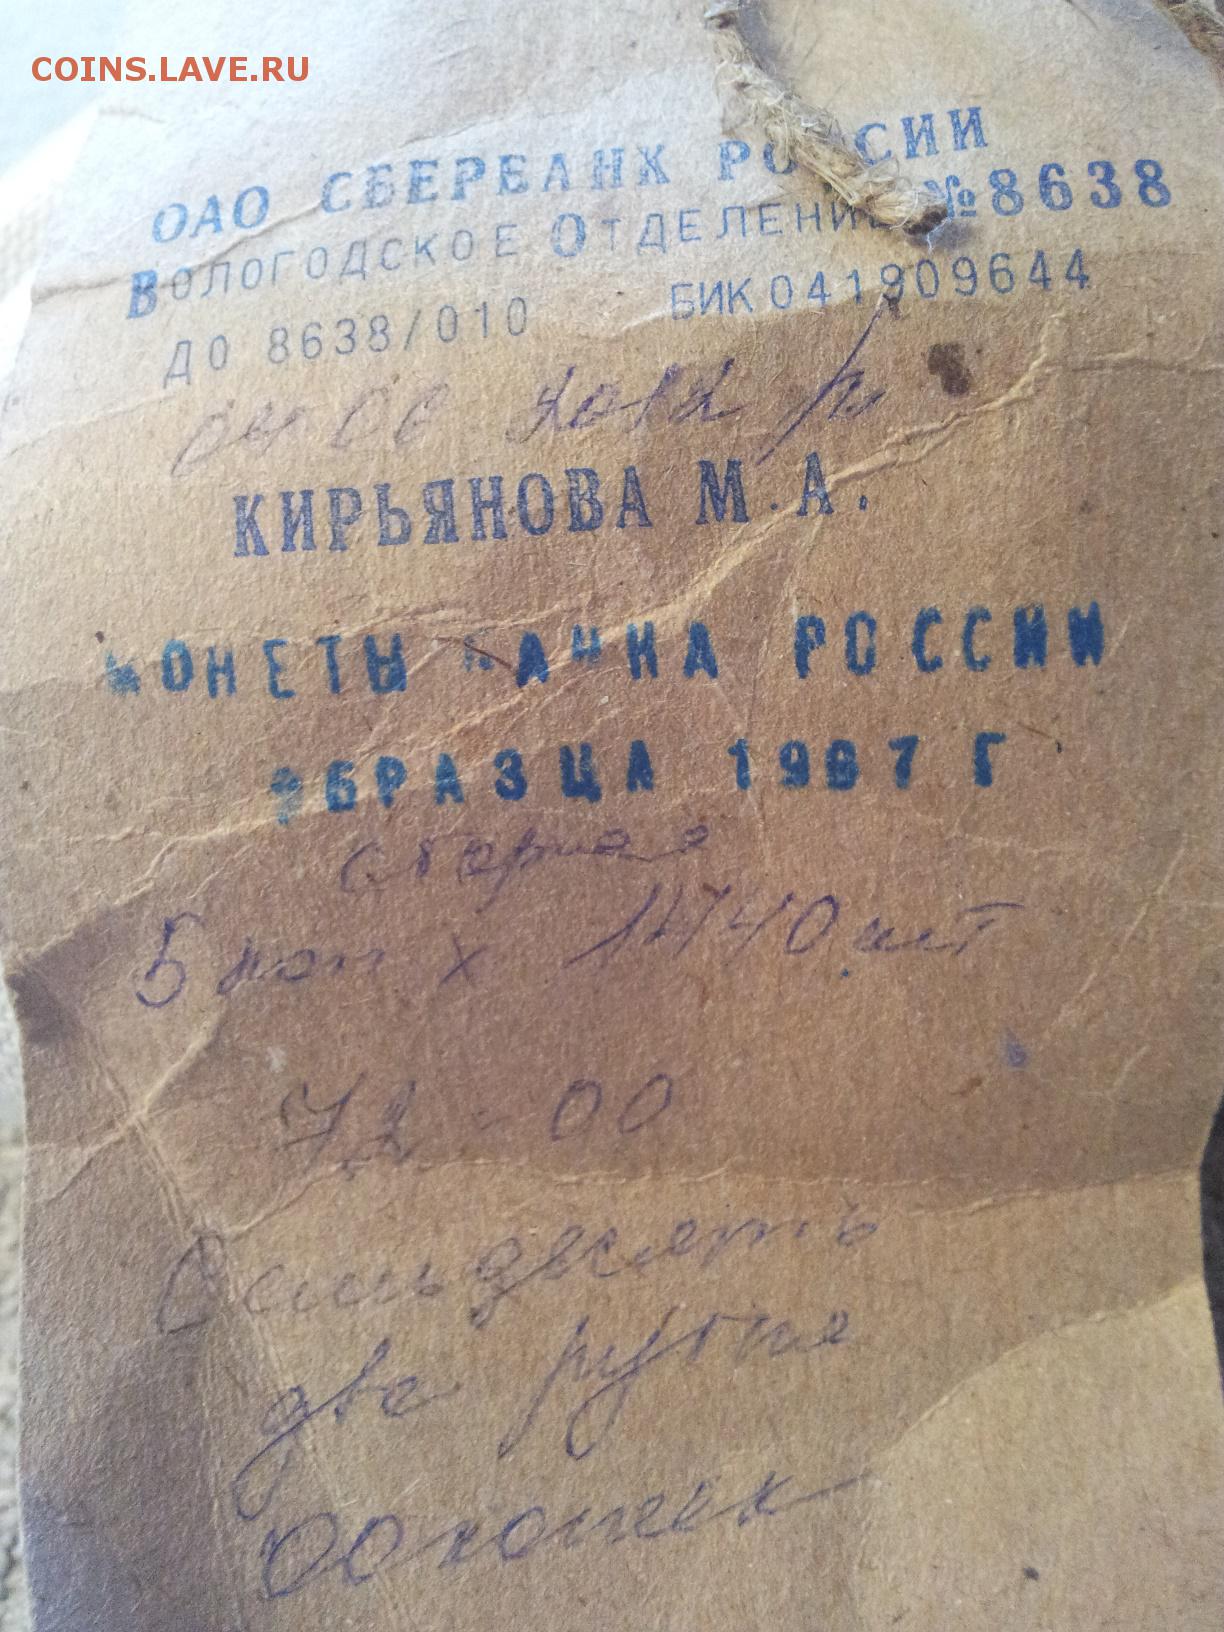 COINS.LAVE.RU
ОАО СБЕРБАНК РОССИИ
ВОЛОГОДСКОЕ ОТДЕЛЕНИЕ №8638
ДО 8638/010 БИК 041909644
2012
КИРЬЯНОВА М.А.
МОНЕТЫ БАНКА РОССИИ
ОБРАЗЦА 1997 Г
5 коп х 1440 шт
72-00
Семьдесять
два рубля
00 копеек